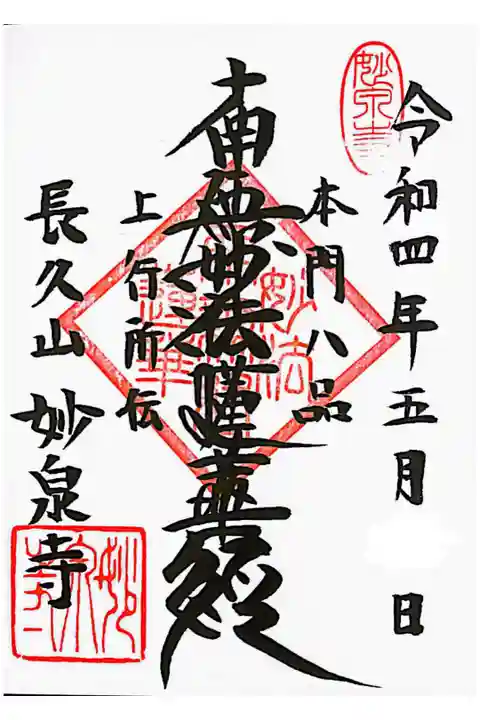 令和四年五月 日
本門八品
南無妙法蓮華経
上行所伝
長久山 妙泉寺
妙泉寺
妙法
蓮華
妙泉寺